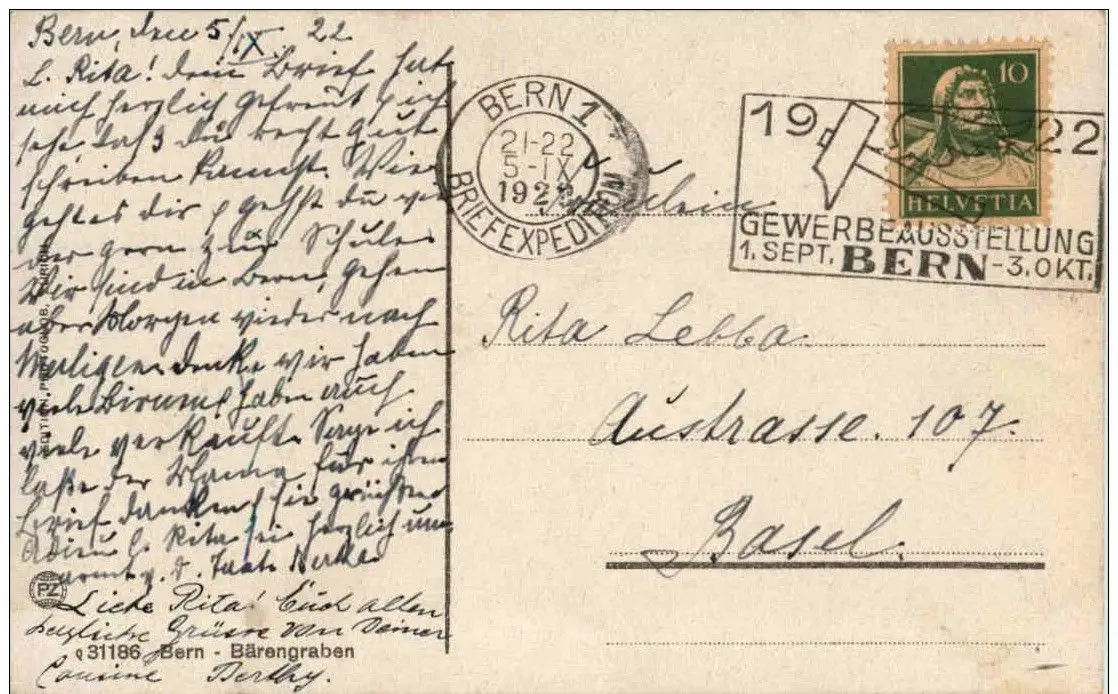 Bern, den 5/IX. 22
L. Rita! dein Brief hat
mich herzlich gefreut, ich
sehe daß du recht gut
schreiben kannst. Wie
geht es dir, gehst du wie
der gern zur Schule
Wir sind in Bern, gehen
aber Morgen wieder nach
denke wir haben
viele Birnen, haben auch
viele verkauft. Sage ich
laße der Mama für ihren
Brief danken, sie grüßen
Adieu l. Rita sei herzlich um
armt v. d.
Liebe Rita! Euch allen
herzliche Grüsse von Deiner
Cousine Berthy.
PZ
31186 Bern - Bärengraben
BERN 1
21-22
5-IX
192
BRIEFEXPEDITION
19 22
GEWERBEAUSSTELLUNG
1. SEPT. BERN - 3. OKT.
10
HELVETIA
Fräulein
Rita Lebba.
Austrasse. 107.
Basel.